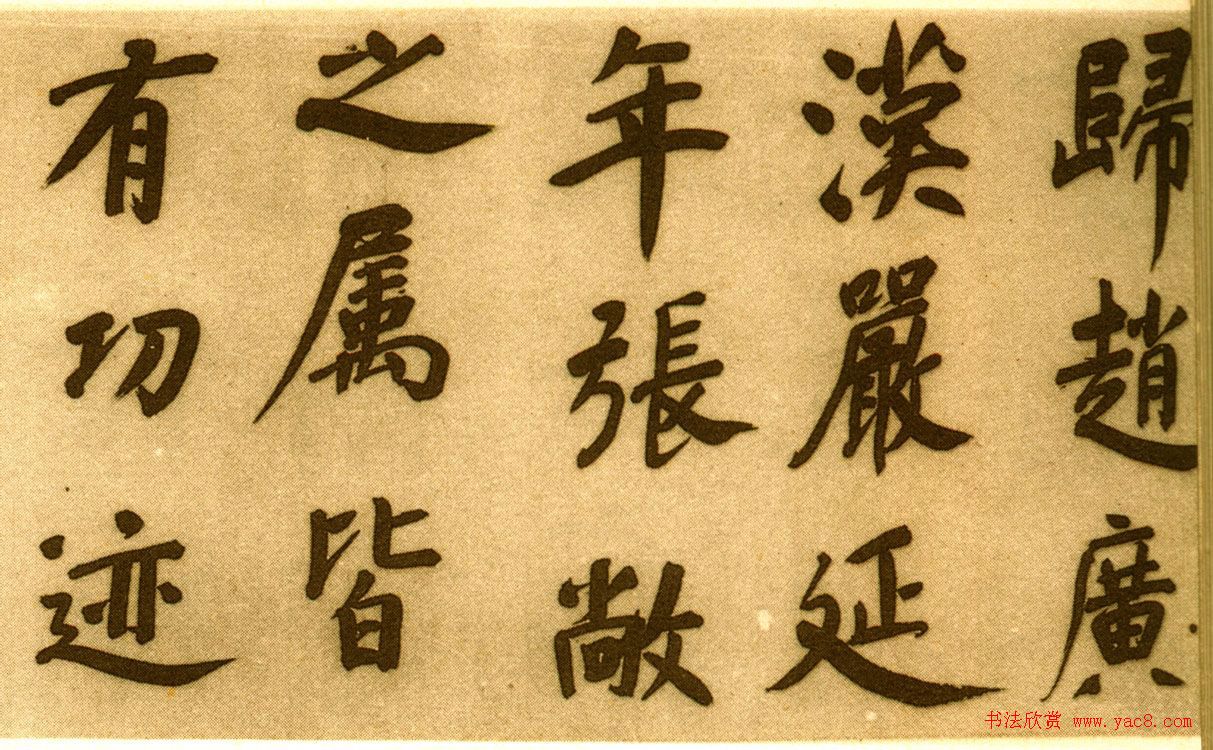 歸趙廣
漢嚴延
年張敞
之属皆
有功迹
书法欣赏 www.yac8.com